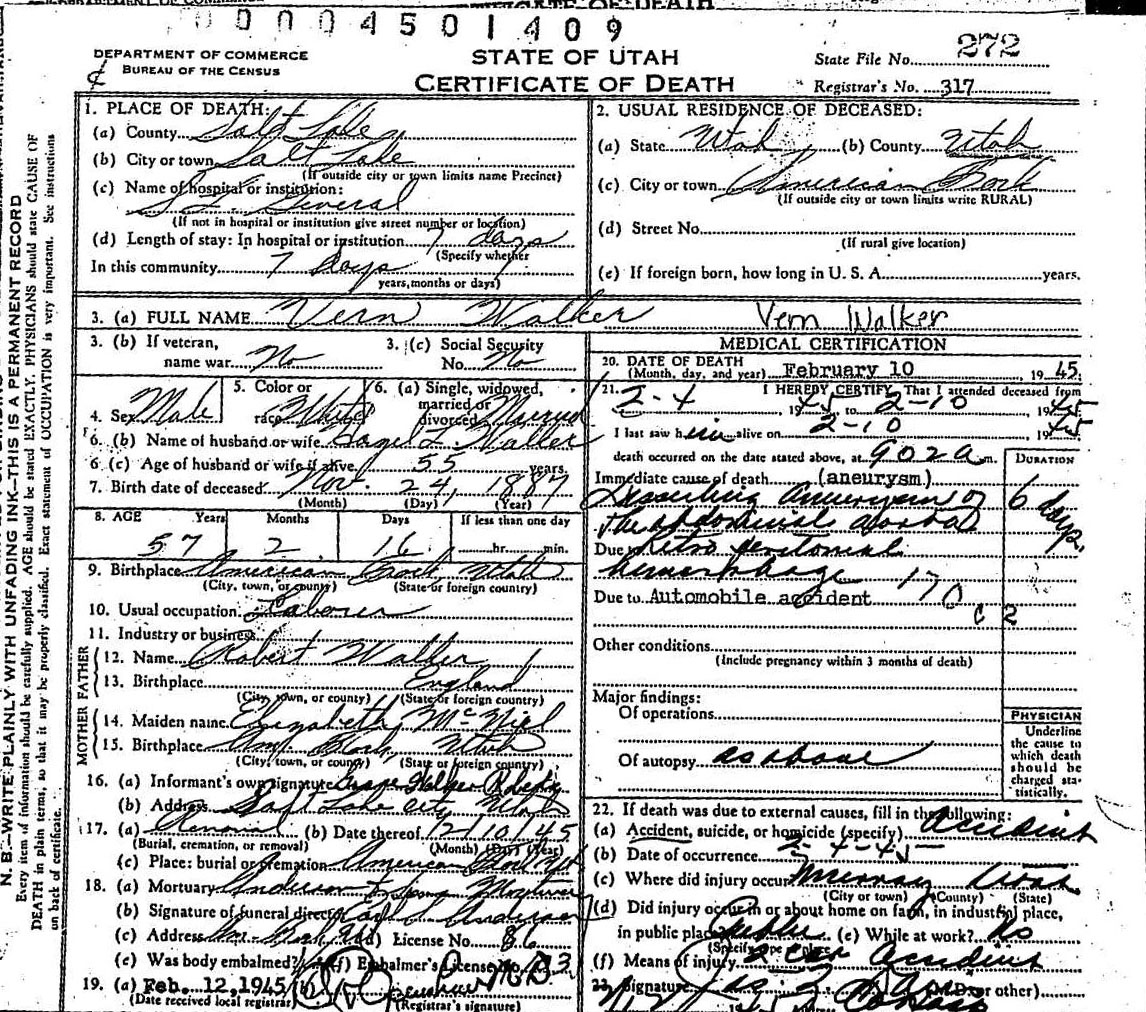 0004501409
DEPARTMENT OF COMMERCE
BUREAU OF THE CENSUS
STATE OF UTAH
CERTIFICATE OF DEATH
State File No. 272
Registrar's No. 317
N. B.—WRITE PLAINLY WITH UNFADING INK—THIS IS A PERMANENT RECORD
Every item of information should be carefully supplied. AGE should be stated EXACTLY. PHYSICIANS should state CAUSE OF
DEATH in plain terms, so that it may be properly classified. Exact statement of OCCUPATION is very important. See instructions
on back of certificate.
1. PLACE OF DEATH:
(a) County Salt Lake
(b) City or town Salt Lake
(If outside city or town limits name Precinct)
(c) Name of hospital or institution:
S L General
(If not in hospital or institution give street number or location)
(d) Length of stay: In hospital or institution 7 days
(Specify whether
In this community 7 Days
years, months or days)
2. USUAL RESIDENCE OF DECEASED:
(a) State Utah (b) County Utah
(c) City or town American Fork
(If outside city or town limits write RURAL)
(d) Street No.
(If rural give location)
(e) If foreign born, how long in U. S. A. years.
3. (a) FULL NAME Vern Walker Vern Walker
3. (b) If veteran, name war No
3. (c) Social Security No. No
4. Sex Male
5. Color or race White
6. (a) Single, widowed, married or divorced Married
6. (b) Name of husband or wife L. Walker
6. (c) Age of husband or wife if alive 55 years.
7. Birth date of deceased Nov. 24, 1887
(Month) (Day) (Year)
8. AGE Years Months Days If less than one day
57 2 16 hr. min.
9. Birthplace American Fork, Utah
(City, town, or county) (State or foreign country)
10. Usual occupation Laborer
11. Industry or business
FATHER
12. Name Robert Walker
13. Birthplace England
(City, town, or county) (State or foreign country)
MOTHER
14. Maiden name Elizabeth McNiel
15. Birthplace Am. Fork, Utah
(City, town, or county) (State or foreign country)
16. (a) Informant's own signature
(b) Address Salt Lake City Utah
17. (a) Removal (b) Date thereof 2/10/45
(Burial, cremation, or removal) (Month) (Day) (Year)
(c) Place: burial or cremation American Fork Ut
18. (a) Mortuary Anderson & Sons Mortuary
(b) Signature of funeral director Anderson
(c) Address Am. Fork, Ut (d) License No. 86
(e) Was body embalmed? (f) Embalmer's License No.
19. (a) Feb. 12, 1945 (b) M.D.
(Date received local registrar) (Registrar's signature)
MEDICAL CERTIFICATION
20. DATE OF DEATH
(Month, day, and year) February 10 1945
21. I HEREBY CERTIFY, That I attended deceased from
2-4 1945, to 2-10 1945
I last saw him alive on 2-10 1945
death occurred on the date stated above, at 902 a m.
DURATION
Immediate cause of death (aneurysm)
Dissecting Aneurysm of 6 days
the abdominal aorta
Due to retro peritoneal
hemorrhage 170
Due to Automobile accident
c 2
Other conditions
(Include pregnancy within 3 months of death)
Major findings:
Of operations
Of autopsy as above
PHYSICIAN
Underline
the cause to
which death
should be
charged sta-
tistically.
22. If death was due to external causes, fill in the following:
(a) Accident, suicide, or homicide (specify) Accident
(b) Date of occurrence 2-4-45
(c) Where did injury occur Murray Utah
(City or town) (County) (State)
(d) Did injury occur in or about home on farm, in industrial place,
in public place? Public (e) While at work? No
(Specify type of place)
(f) Means of injury 2 car Accident
Signature (M.D. or other)